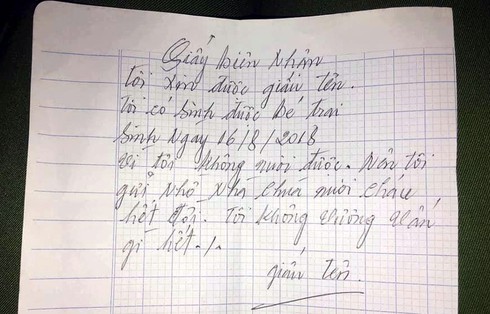 Giấy Biên Nhận
tôi xin được giấu tên.
tôi có sinh được Bé trai
sinh Ngày 16/8/2018
vì tôi không nuôi được. Nên tôi
gửi Nhờ Nhà chùa nuôi cháu
hết đời. tôi không vướng
gì hết./.
giấu tên.